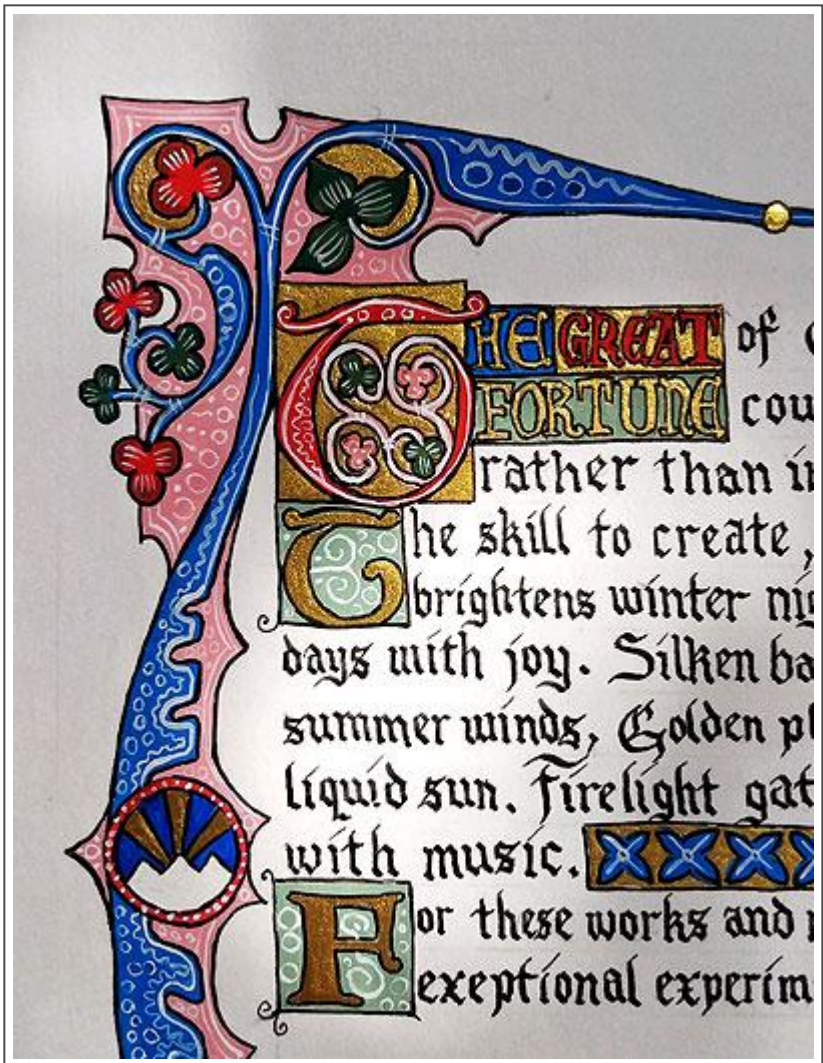 THE GREAT of
FORTUNE cou
rather than
The skill to create,
brightens winter
days with joy. Silken
summer winds, Golden
liquid sun. Firelight
with music.
For these works and
exeptional